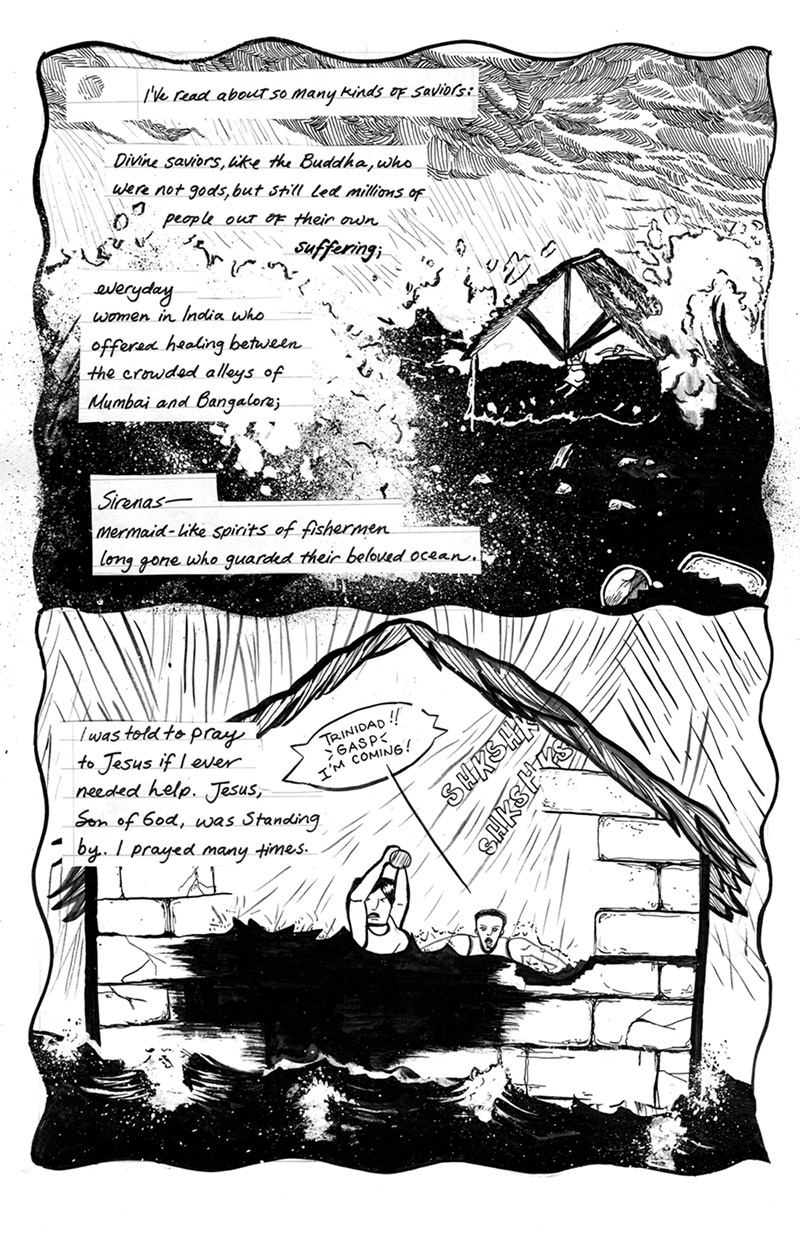 I've read about so many kinds of saviors:
Divine saviors, like the Buddha, who
were not gods, but still led millions of
people out of their own
suffering;
everyday
women in India who
offered healing between
the crowded alleys of
Mumbai and Bangalore;
Sirenas—
mermaid-like spirits of fishermen
long gone who guarded their beloved ocean.
I was told to pray
to Jesus if I ever
needed help. Jesus,
Son of God, was standing
by. I prayed many times.
TRINIDAD!!
>GASP<
I'M COMING!
SHKSHK
SHKSHKS